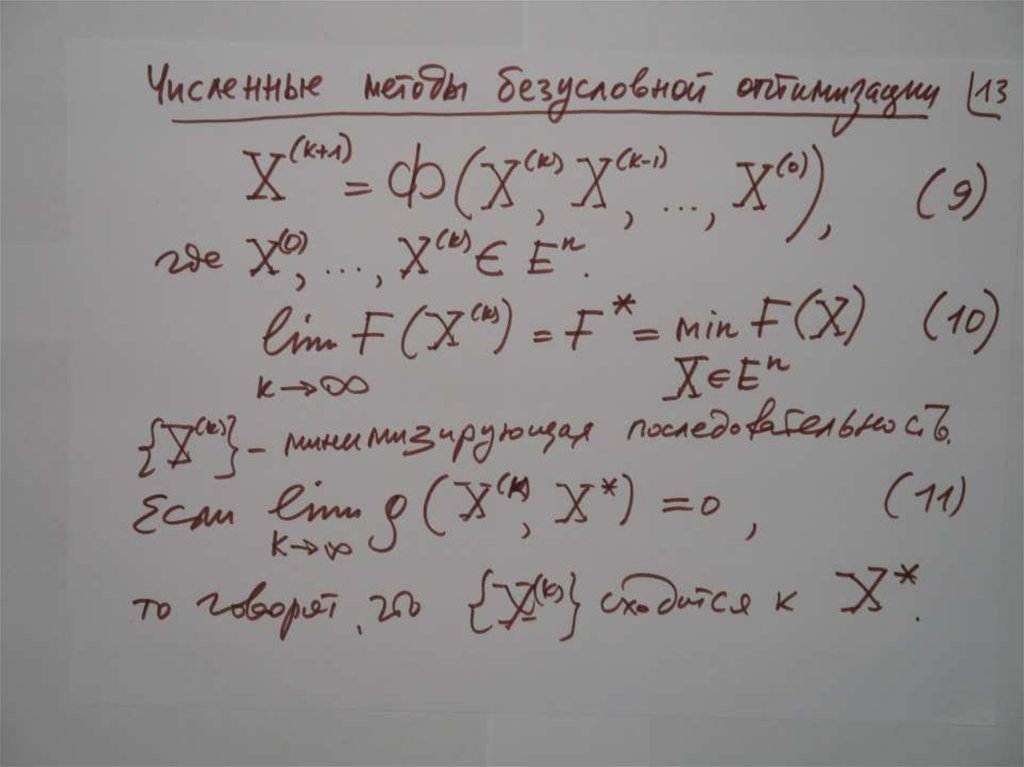 Численные методы безусловной оптимизации 13
X^(k+1) = Ф(X^(k), X^(k-1), ..., X^(0)), (9)
где X^(0), ..., X^(k) ∈ E^n.
lim F(X^(k)) = F* = min F(X) (10)
k→∞ X∈E^n
{X^(k)} - минимизирующая последовательность.
Если lim ρ(X^(k), X*) = 0, (11)
k→∞
то говорят, что {X^(k)} сходится к X*.